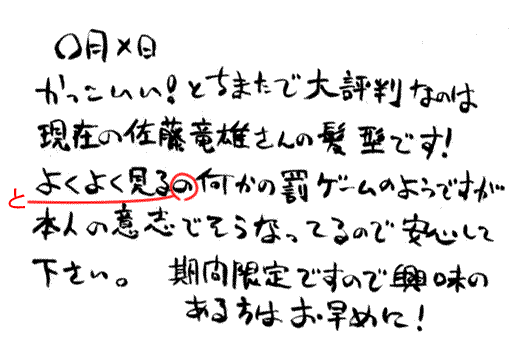 〇月×日
かっこいい!とちまたで大評判なのは
現在の佐藤竜雄さんの髪型です!
よくよく見るの何かの罰ゲームのようですが
と
本人の意志でそうなってるので安心して
下さい。 期間限定ですので興味の
ある方はお早めに!